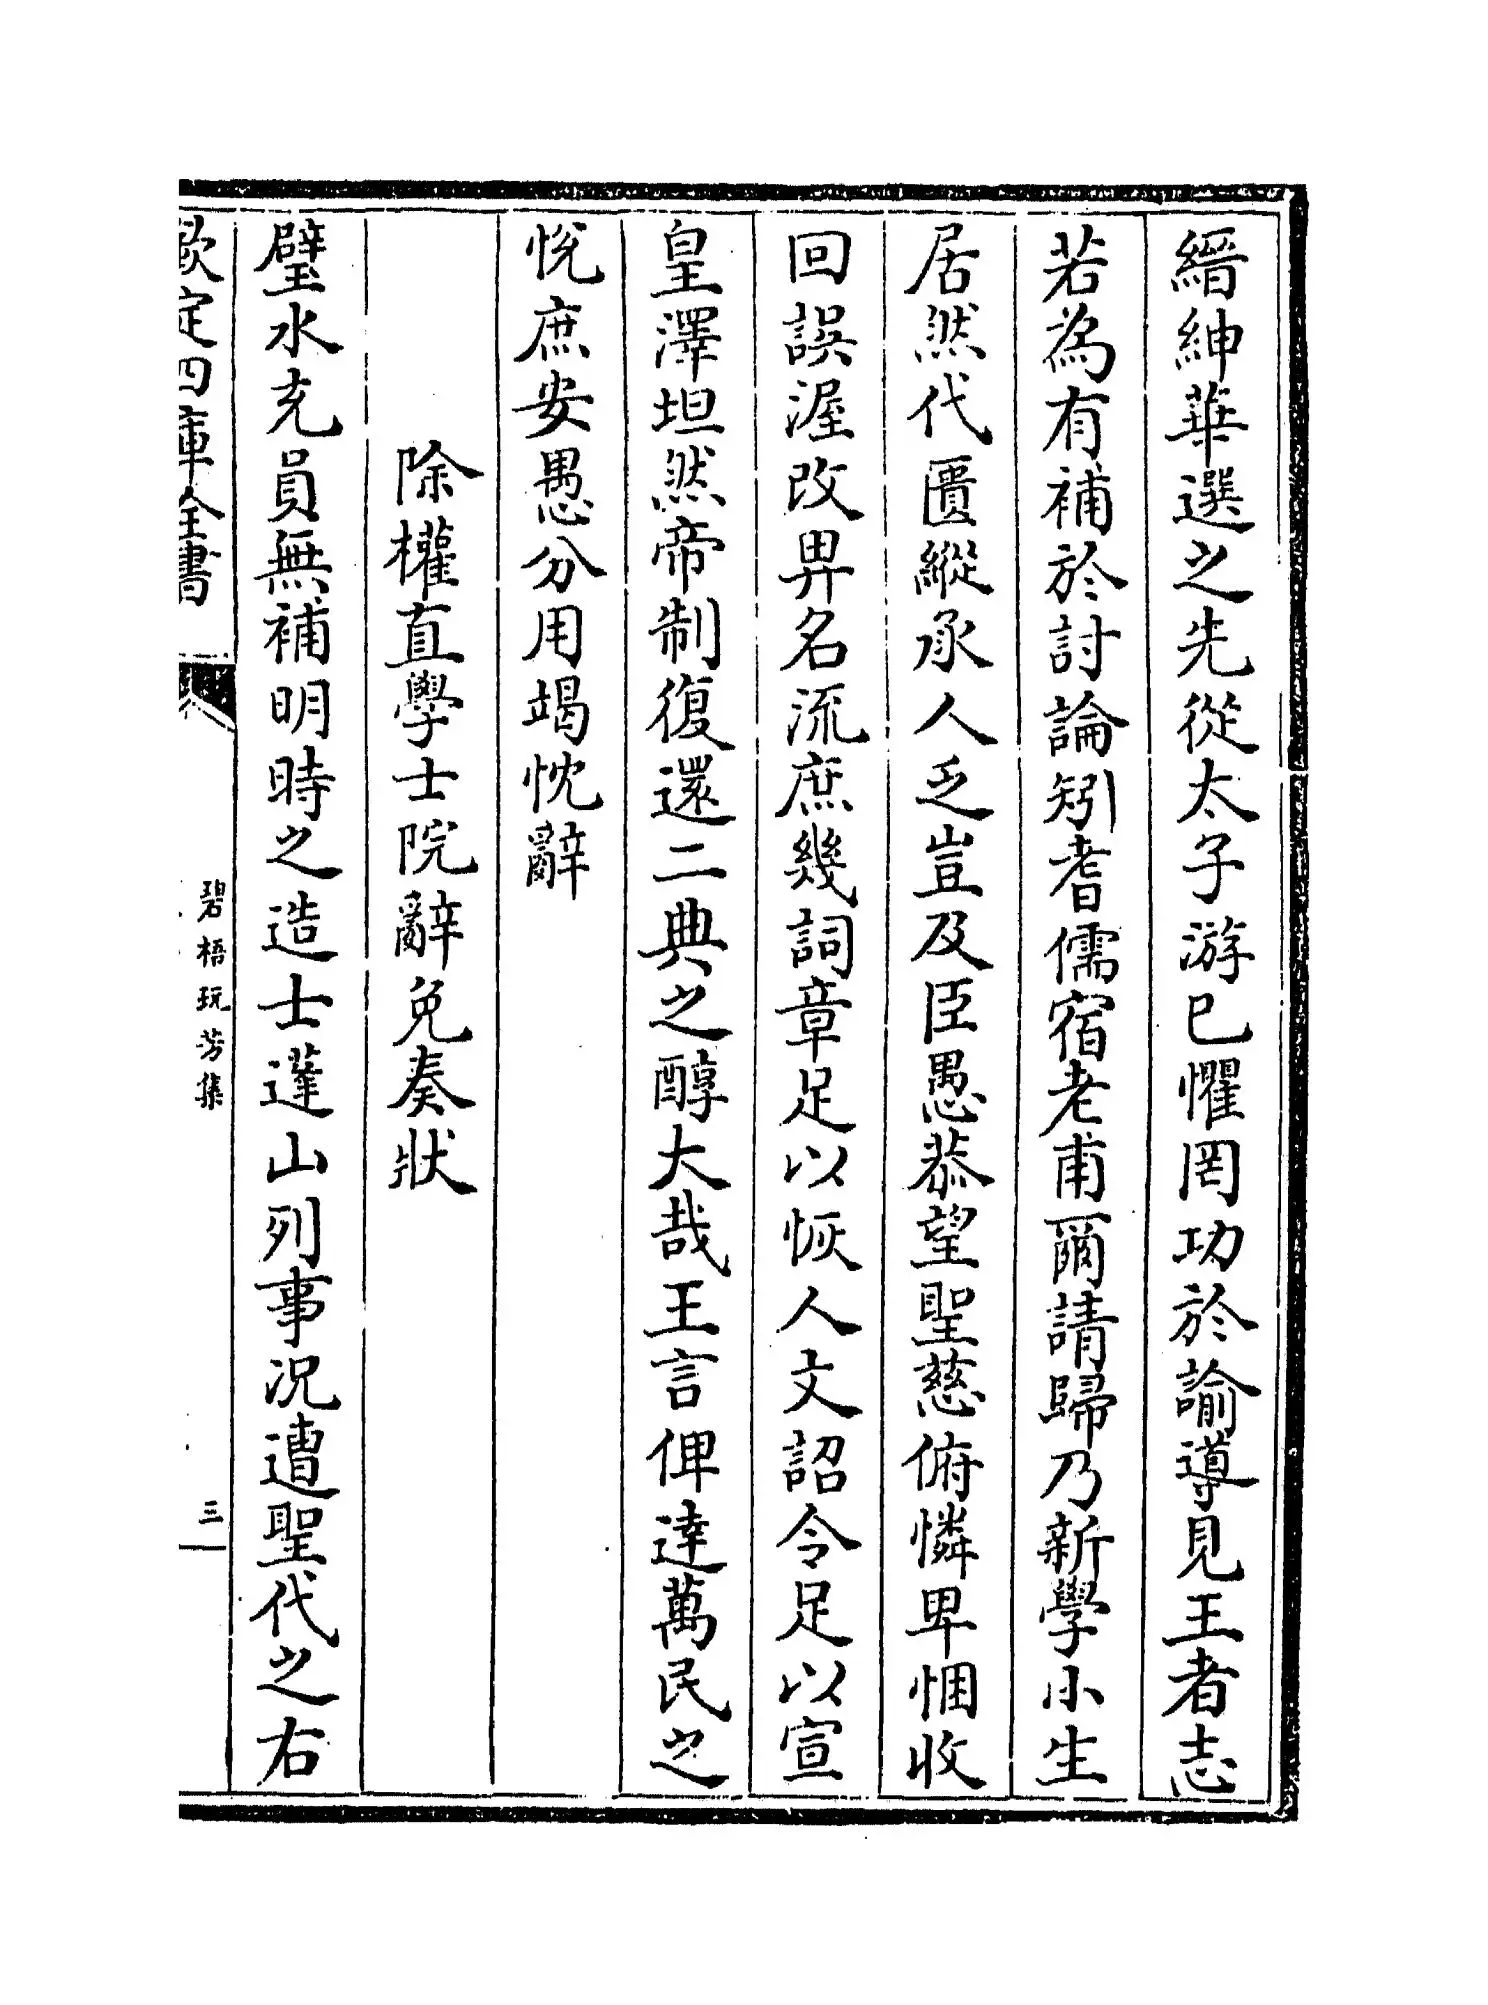 縉紳華選之先從太子游已懼罔功於諭導見王者志
若為有補於討論矧耆儒宿老甫爾請歸乃新學小生
居然代匱縱承人乏豈及臣愚恭望聖慈俯憐卑悃收
回誤渥改畀名流庶幾詞章足以恢人文詔令足以宣
皇澤坦然帝制復還二典之醇大哉王言俾達萬民之
悅庶安愚分用竭忱辭
除權直學士院辭免奏狀
璧水充員無補明時之造士蓬山列事況遭聖代之右
欽定四庫全書
碧梧玩芳集
三